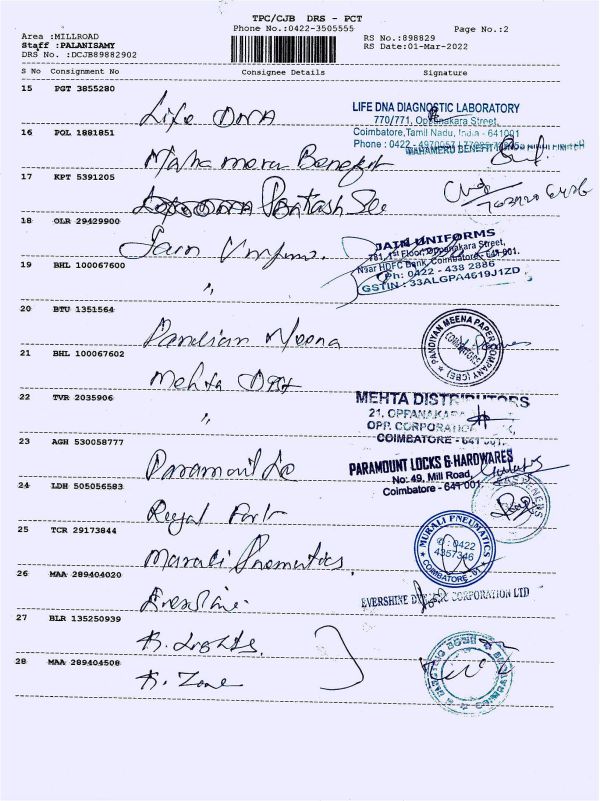 TPC/CJB DRS - PCT
Phone No.:0422-3505555
Page No.:2
Area :MILLROAD
Staff :PALANISAMY
DRS No. :DCJB89882902
RS No.:898829
RS Date:01-Mar-2022
S No Consignment No Consignee Details Signature
15 PGT 3855280
Life DNA
LIFE DNA DIAGNOSTIC LABORATORY
770/771, Oppanakara Street,
Coimbatore,Tamil Nadu, India - 641001
Phone : 0422 - 4970057
16 POL 1881851
Maha meru Benefit
MAHAMERU BENEFIT
17 KPT 5391205
18 OLR 29429900
Jain Uniforms.
JAIN UNIFORMS
781, 1st Floor, Oppanakara Street,
Near HDFC Bank, Coimbatore - 641 001.
Ph: 0422 - 438 2886
GSTIN : 33ALGPA4619J1ZD
19 BHL 100067600
"
20 BTU 1351564
Pandian Meena
PANDIYAN MEENA PAPER COMPANY (CBE)
COIMBATORE
21 BHL 100067602
Mehta Dist
22 TVR 2035906
"
MEHTA DISTRIBUTORS
21, OPPANAKARA
OPP. CORPORATION
COIMBATORE - 641 001.
23 AGH 530058777
Paramount Lo
PARAMOUNT LOCKS & HARDWARES
No: 49, Mill Road,
Coimbatore - 641 001
24 LDH 505056583
Royal Fast
25 TCR 29173844
Murali Pneumatics.
MURALI PNEUMATICS
✆ : 0422
4357346
COIMBATORE - 01
26 MAA 289404020
Evershine
EVERSHINE CORPORATION LTD
27 BLR 135250939
K. Lights.
28 MAA 289404508
K. Zone